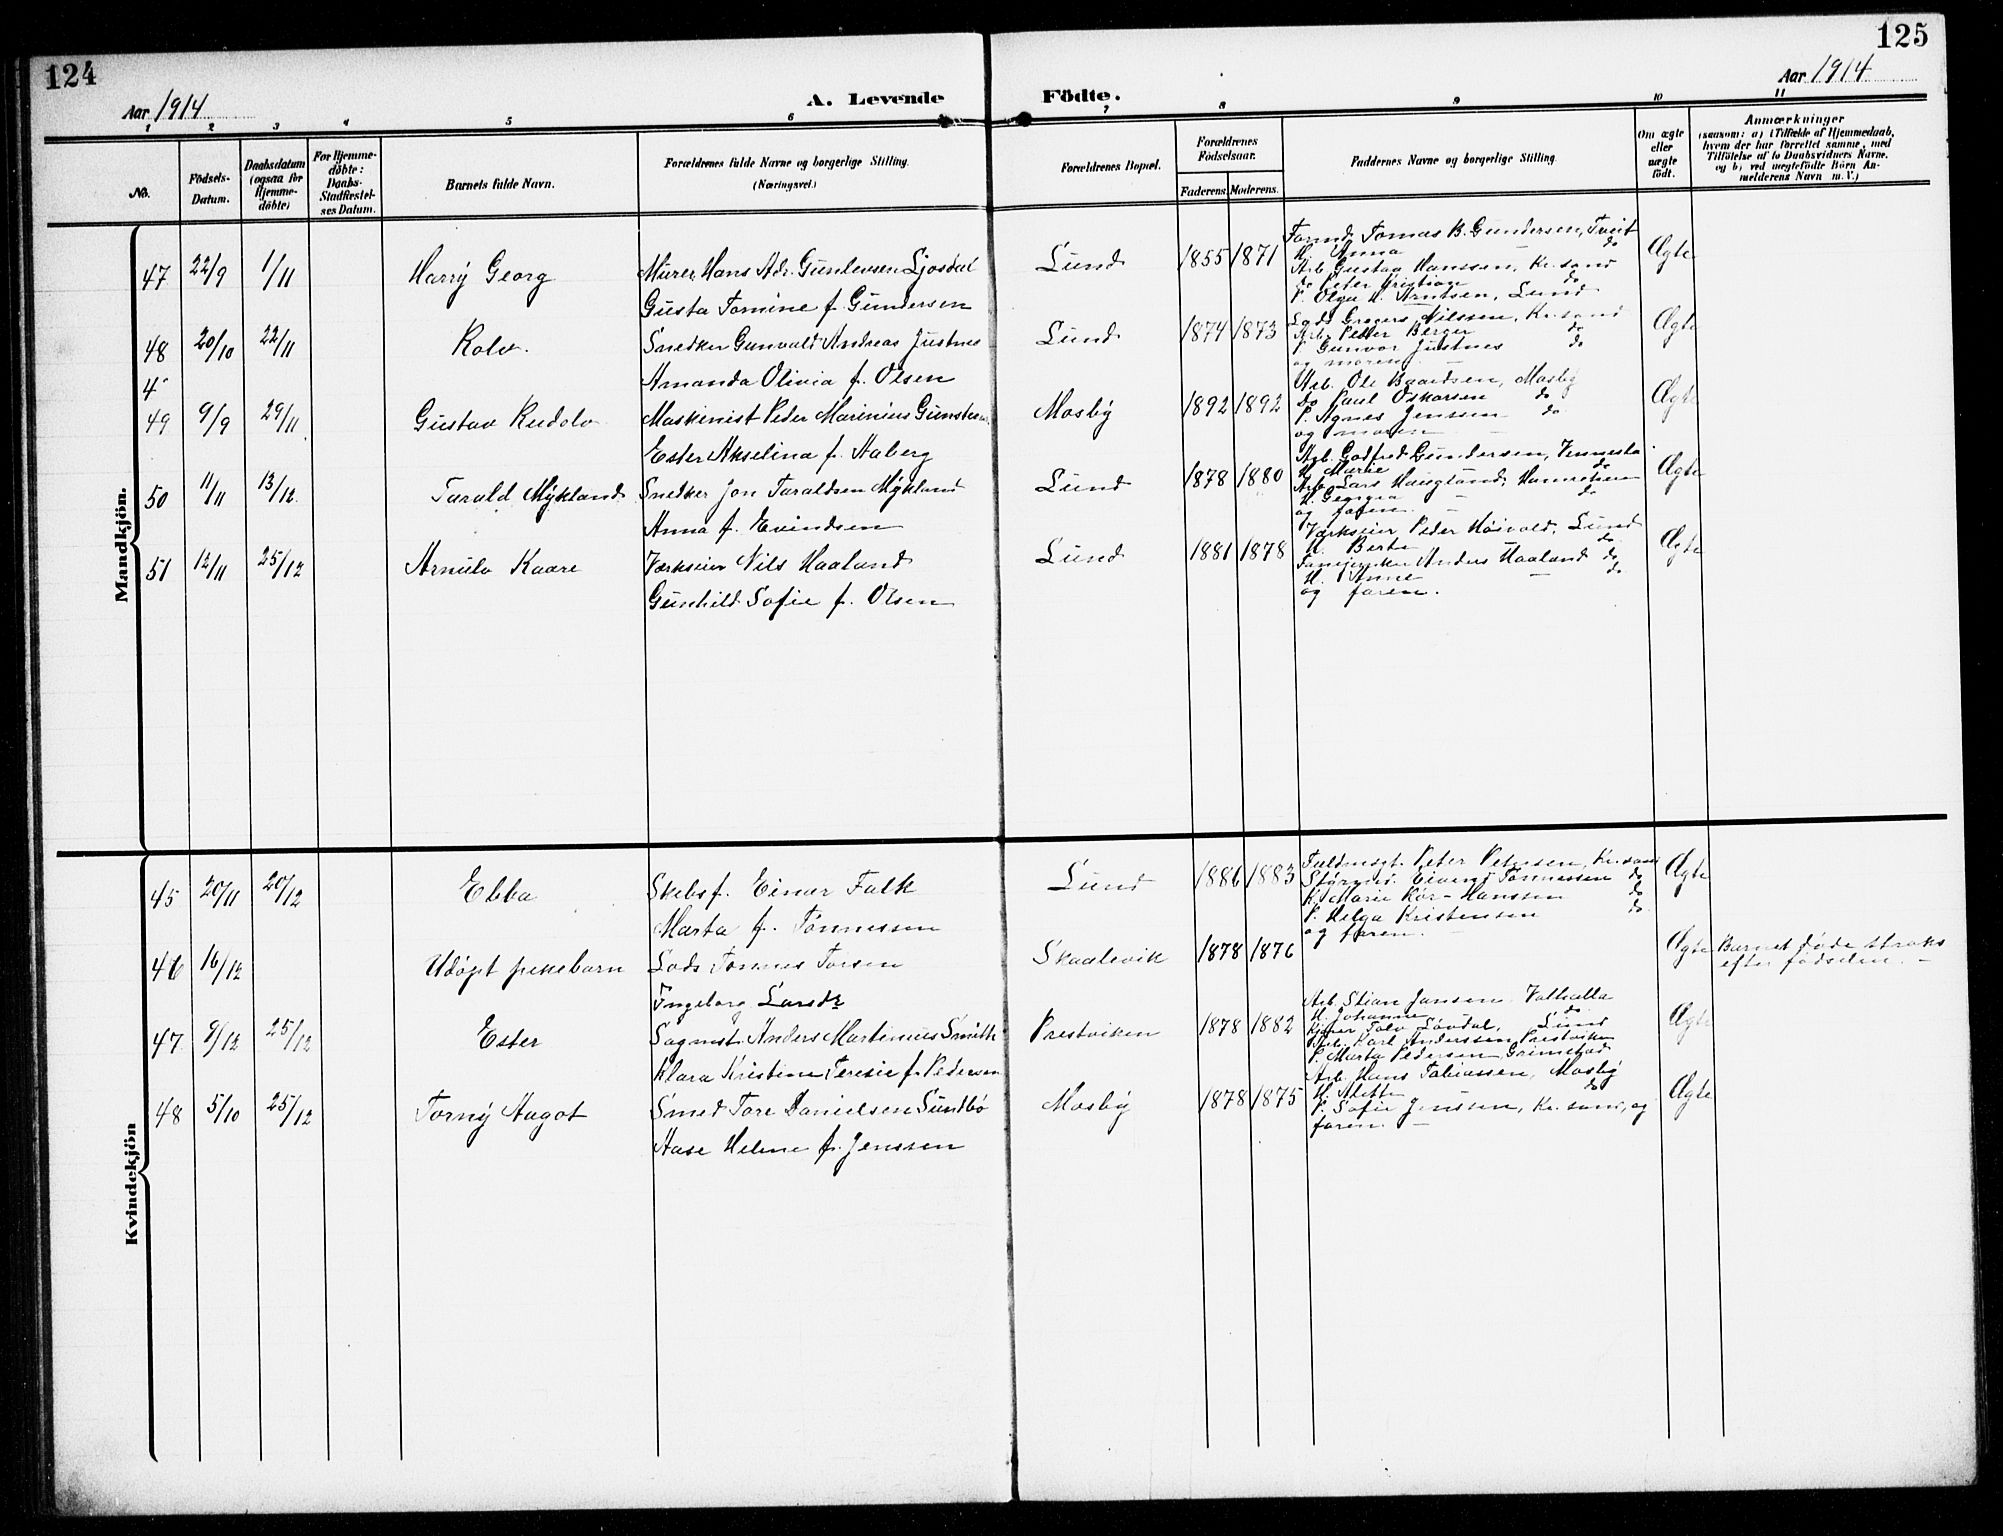 124
125
Aar 1914
A. Levende Födte.
Aar 1914
1 2 3 4 5 6 7 8 9 10 11
No.
Födsels-Datum.
Daabsdatum (ogsaa for Hjemme-döbte)
For Hjemme-döbte: Daabs-Stadfæstel-ses Datum.
Barnets fulde Navn.
Forældrenes fulde Navne og borgerlige Stilling. (Næringsvei.)
Forældrenes Bopæl.
Forældrenes Födselsaar.
Faderens. Moderens.
Faddernes Navne og borgerlige Stilling.
Om ægte eller uægte födt.
Anmærkninger
(saasom: a) i Tilfælde af Hjemmedaab,
hvem der har forrettet samme, med
Tilföielse af to Daabsvidners Navne.
og b) ved uægtefödte Börn An-
melderens Navn m. V.)
Mandkjön.
47 22/9 1/11 Harry Georg
Murer Hans Adr. Gunlevsen Ljosdal
Gusta Tomine f. Gundersen
Lund 1855 1871
Tomas B. Gundersen, Tveit
H. Anna — do
Arb. Gustav Hanssen, Kr.sand
do Peter Kristian do
P. Olga M. Arntsen, Lund
Ægte
48 20/10 22/11 Rolv.
Snedker Gunvald Andreas Justnes
Amanda Olivia f. Olsen
Lund 1874 1873
Lods Gregers Nilssen, Kr.sand
Arb. Petter Berger do
P. Gunvor Justnes do
og moren. —
Ægte
4
49 9/9 29/11 Gustav Rudolv
Maskinist Peder Marinius
Ester Akselina f. Aaberg
Mosby 1892 1892
Arb. Ole Baardsen, Mosby
do Paul Oskarsen do
P. Agnes Jenssen do
og moren —
Ægte
50 11/11 13/12. Tarald Mykland
Snedker Jon Taraldsen Mykland
Anna f. Evindsen
Lund 1878 1880
Arb. Godfred Gundersen, Vennesla
H. Marie do
Arb. Lars Haugland,
H. Georgia — do
og faren. —
Ægte
51 12/11 25/12 Arnulv Kaare
Værkseier Nils Haaland
Gunhild Sofie f. Olsen
Lund 1881 1878
Værkseier Peder Høivold, Lund
H. Berte — do
Anders Haaland do
H. Anne — do
og faren.
Ægte
Kvindekjön
45 20/11 20/12 Ebba
Skibsf. Einar Falk
Marta f. Tønnessen
Lund 1886 1883
Fuldmægt. Peter Petersen, Kr.sand
Eivind Tønnessen do
K. Marie Kør-Hanssen do
P. Helga Kristensen do
og faren. —
Ægte
46 16/12 Udøpt pikebarn
Lods Tomas Torsen
Ingeborg Larsdr
Skaalevik 1878 1876
Ægte
Barnet døde straks
efter fødselen. —
47 9/12 25/12 Ester
Sagmst. Anders Martinius Smith
Klara Kristine Teresie f. Pedersen
Prestviken 1878 1882
Arb. Stian Jansen Valhalla
H. Johanne do.
Kjører Tolv Løvdal, Lund
Arb. Karl Anderssen Prestviken
P. Marta Pedersen Grimstad
Ægte
48 5/10 25/12 Torny Aagot
Smed Tore Danielsen Sundbø
Aase Helene f. Jenssen
Mosby 1878 1875
Arb. Hans Tobiassen, Mosby
H. Alette do
P. Sofie Jenssen, Kr.sand, og
faren. —
Ægte